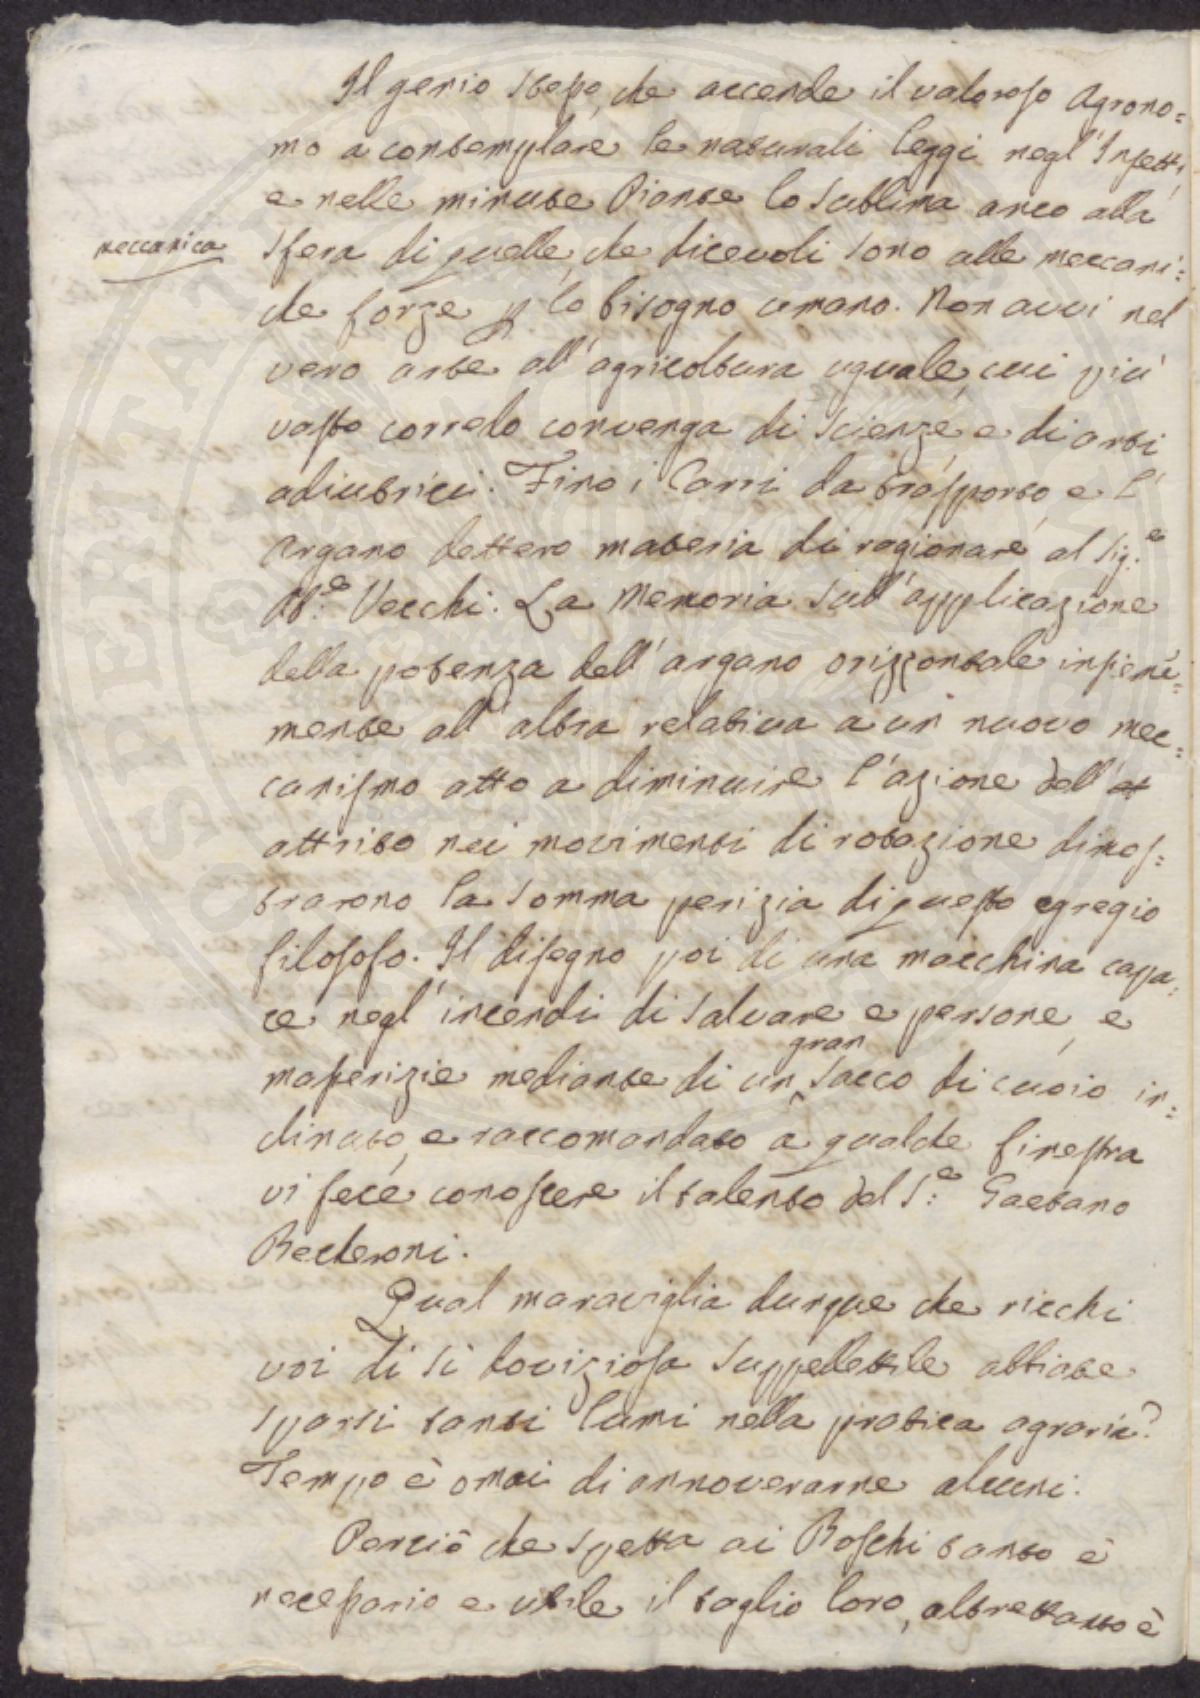 Il genio stesso, che accende il valoroso Agrono=
mo a contemplare le naturali leggi negl'Insetti,
e nelle minute Piante lo sublima anco alla
meccanica
sfera di quelle, che dicevoli sono alle meccani=
che forze p lo bisogno umano. Non avvi nel
vero arte all'agricoltura uguale, cui più
vasto corredo convenga di scienze, e di arti
adiutrici. Fino i Carri da trasporto e l'
Argano dettero materia di ragionare al Sig.e
Ab.e Vecchi. La Memoria sull'applicazione
della potenza dell'argano orizzontale insieme=
mente all'altra relativa a un nuovo mec=
canismo atto a diminuire l'azione dell'at
attrito nei movimenti di rotazione dimos=
trarono la somma perizia di questo egregio
filosofo. Il disegno poi di una macchina capa=
ce negl'incendi di salvare e persone, e
masserizie mediante di un gran sacco di cuoio in=
clinato, e raccomandato a qualche finestra
vi fece conoscere il talento del S.e Gaetano
Becheroni.
Qual maraviglia dunque che ricchi
voi di sì doviziosa suppellettile abbiate
sparsi tanti lumi nella pratica agraria?
Tempo è omai di annoverarne alcuni.
Perciò che spetta ai Boschi tanto è
necessario e utile il taglio loro, altrettanto è